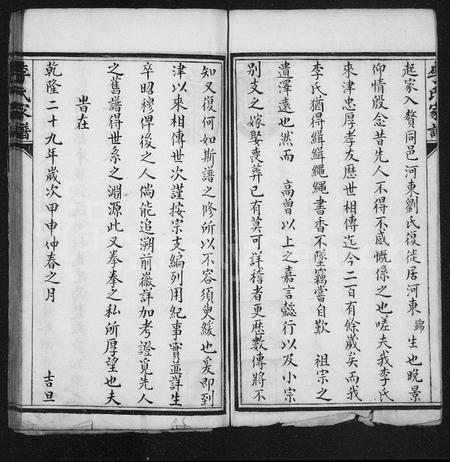 起家入贅同邑河東劉氏復徙居河東錦生也晚景
仰情殷念昔先人不得不感慨係之也嗟夫我李氏
來津忠厚孝友歷世相傳迄今二百有餘歲矣而我
李氏猶得緝緝繩繩書香不墜竊嘗自歎 祖宗之
遺澤遠也然而 高曾以上之嘉言懿行以及小宗
別支之嫁娶喪葬已有莫可詳稽者更歷數傳將不
知又復何如斯譜之修所以不容須更緩也爰即到
津以來相傳世次謹按宗支編列用紀事實並詳生
卒昭穆俾後之人倘能追溯前徽詳加考證覓先人
之舊譜得世系之淵源此又拳拳之私所厚望也夫
旹在
乾隆二十九年歲次甲申仲春之月 吉旦
李氏家譜